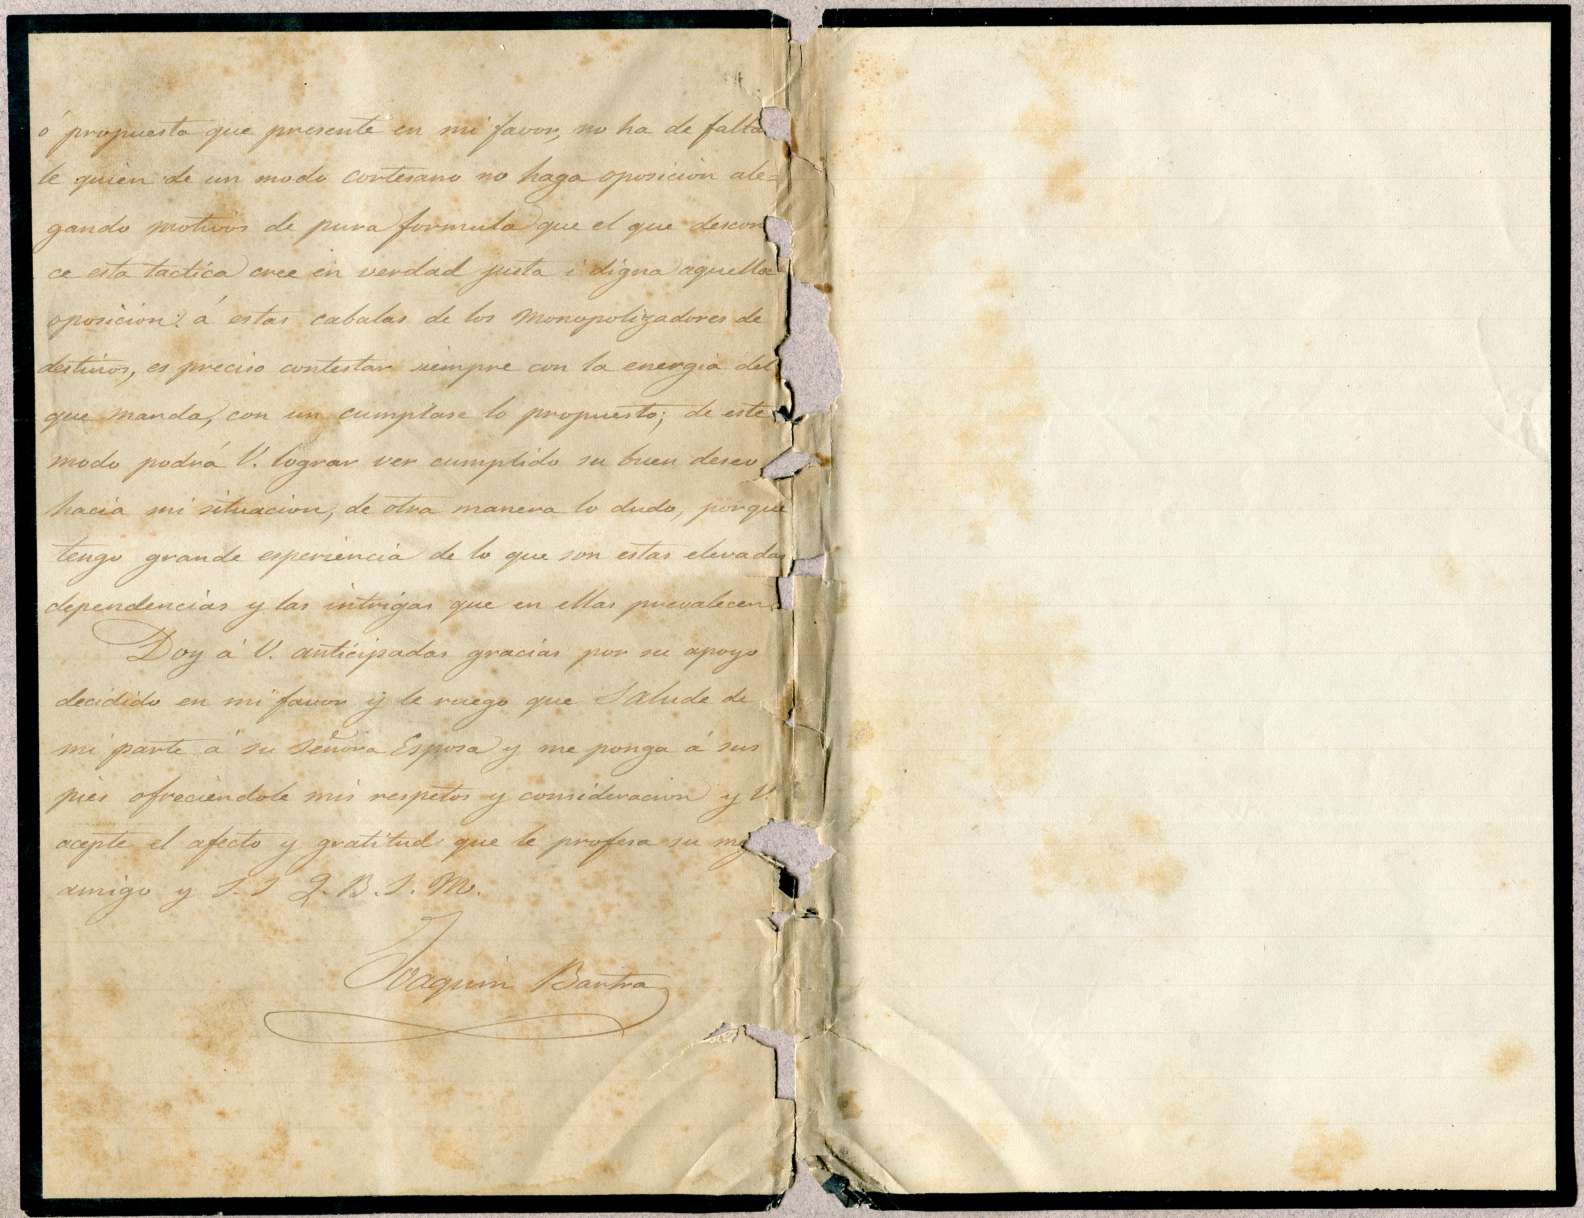 ó propuesta que presente en mi favor, no ha de falta
le quien de un modo cortesano no haga oposicion ale=
gando motivos de pura formula que el que descon
ce esta tactica cree en verdad justa i digna aquella
oposicion: á estas cabalas de los Monopolizadores de
destinos, es preciso contestar siempre con la energia del
que manda, con un cumplase lo propuesto; de este
modo podrá V. lograr ver cumplido su buen deseo
hacia mi situacion, de otra manera lo dudo, porque
tengo grande esperiencia de lo que son estas elevadas
dependencias y las intrigas que en ellas prevalecen.
Doy á V. anticipadas gracias por su apoyo
decidido en mi favor y le ruego que Salude de
mi parte á su señora Esposa y me ponga á sus
pies ofreciendole mis respetos y consideracion y V.
acepte el afecto y gratitud que le profesa su
amigo y S. S Q. B. S. M.
Joaquin Bartra